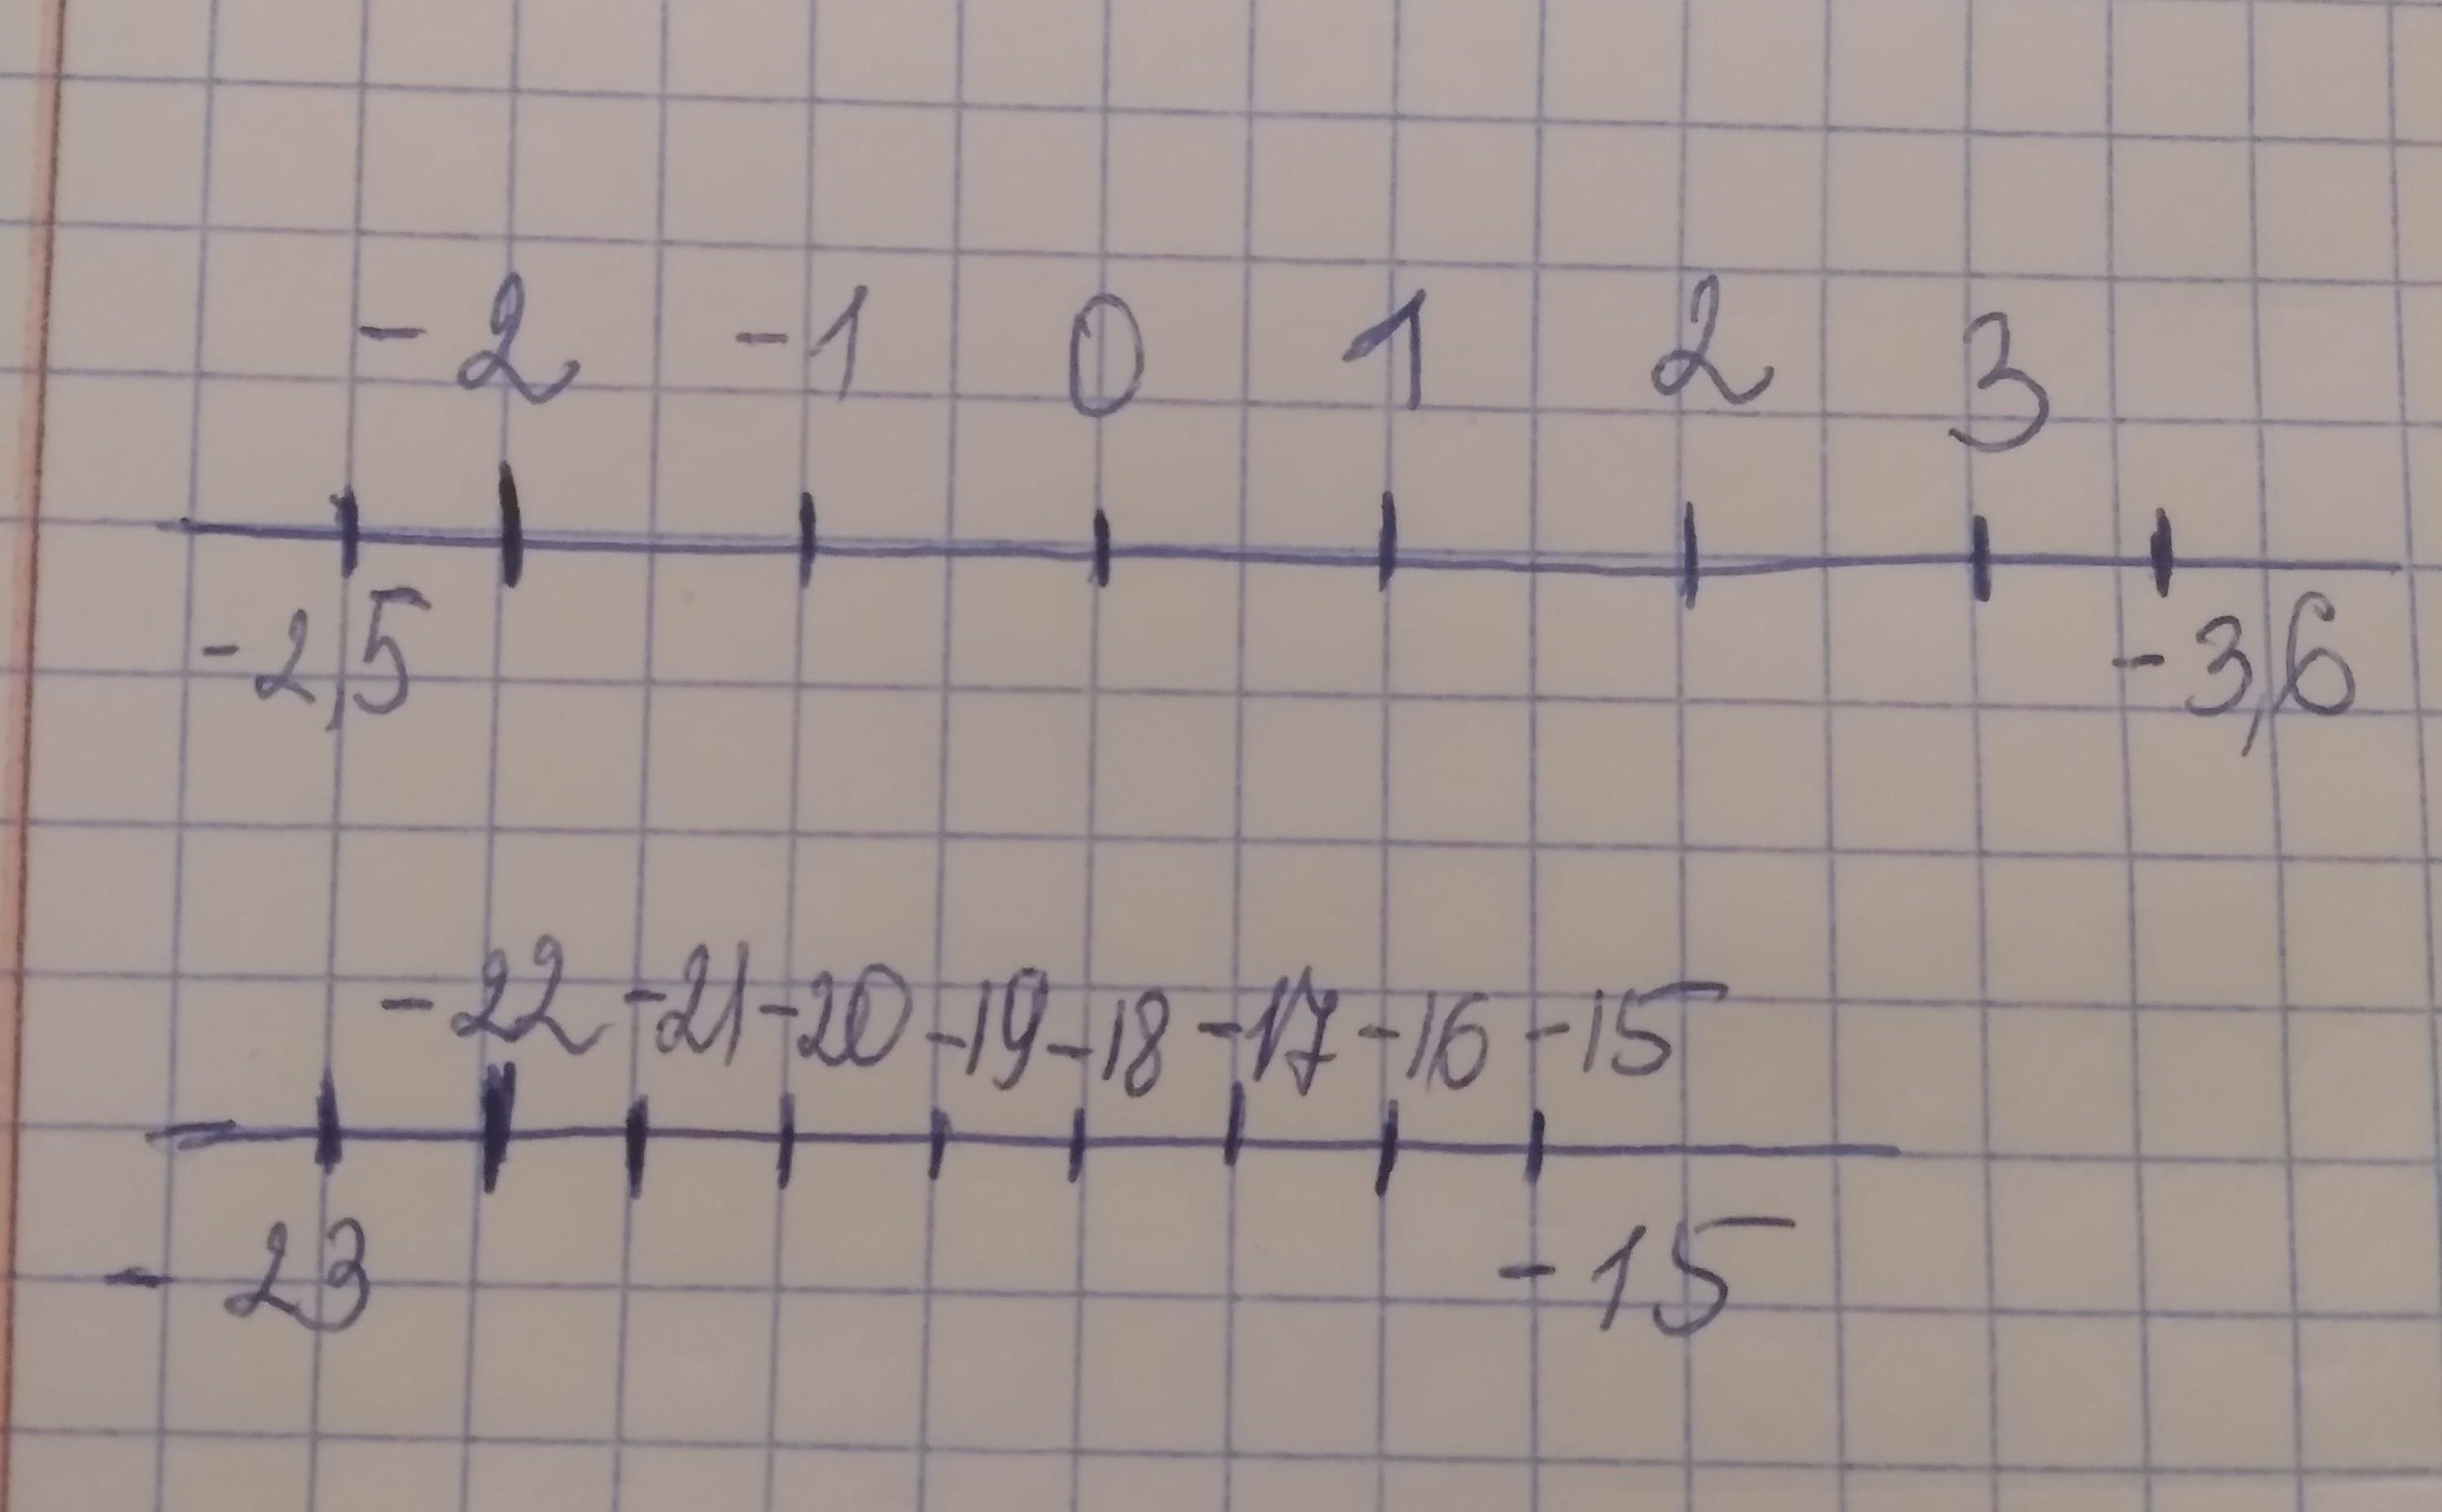 -2 -1 0 1 2 3
-2,5 -3,6
-22 -21 -20 -19 -18 -17 -16 -15
-23 -15